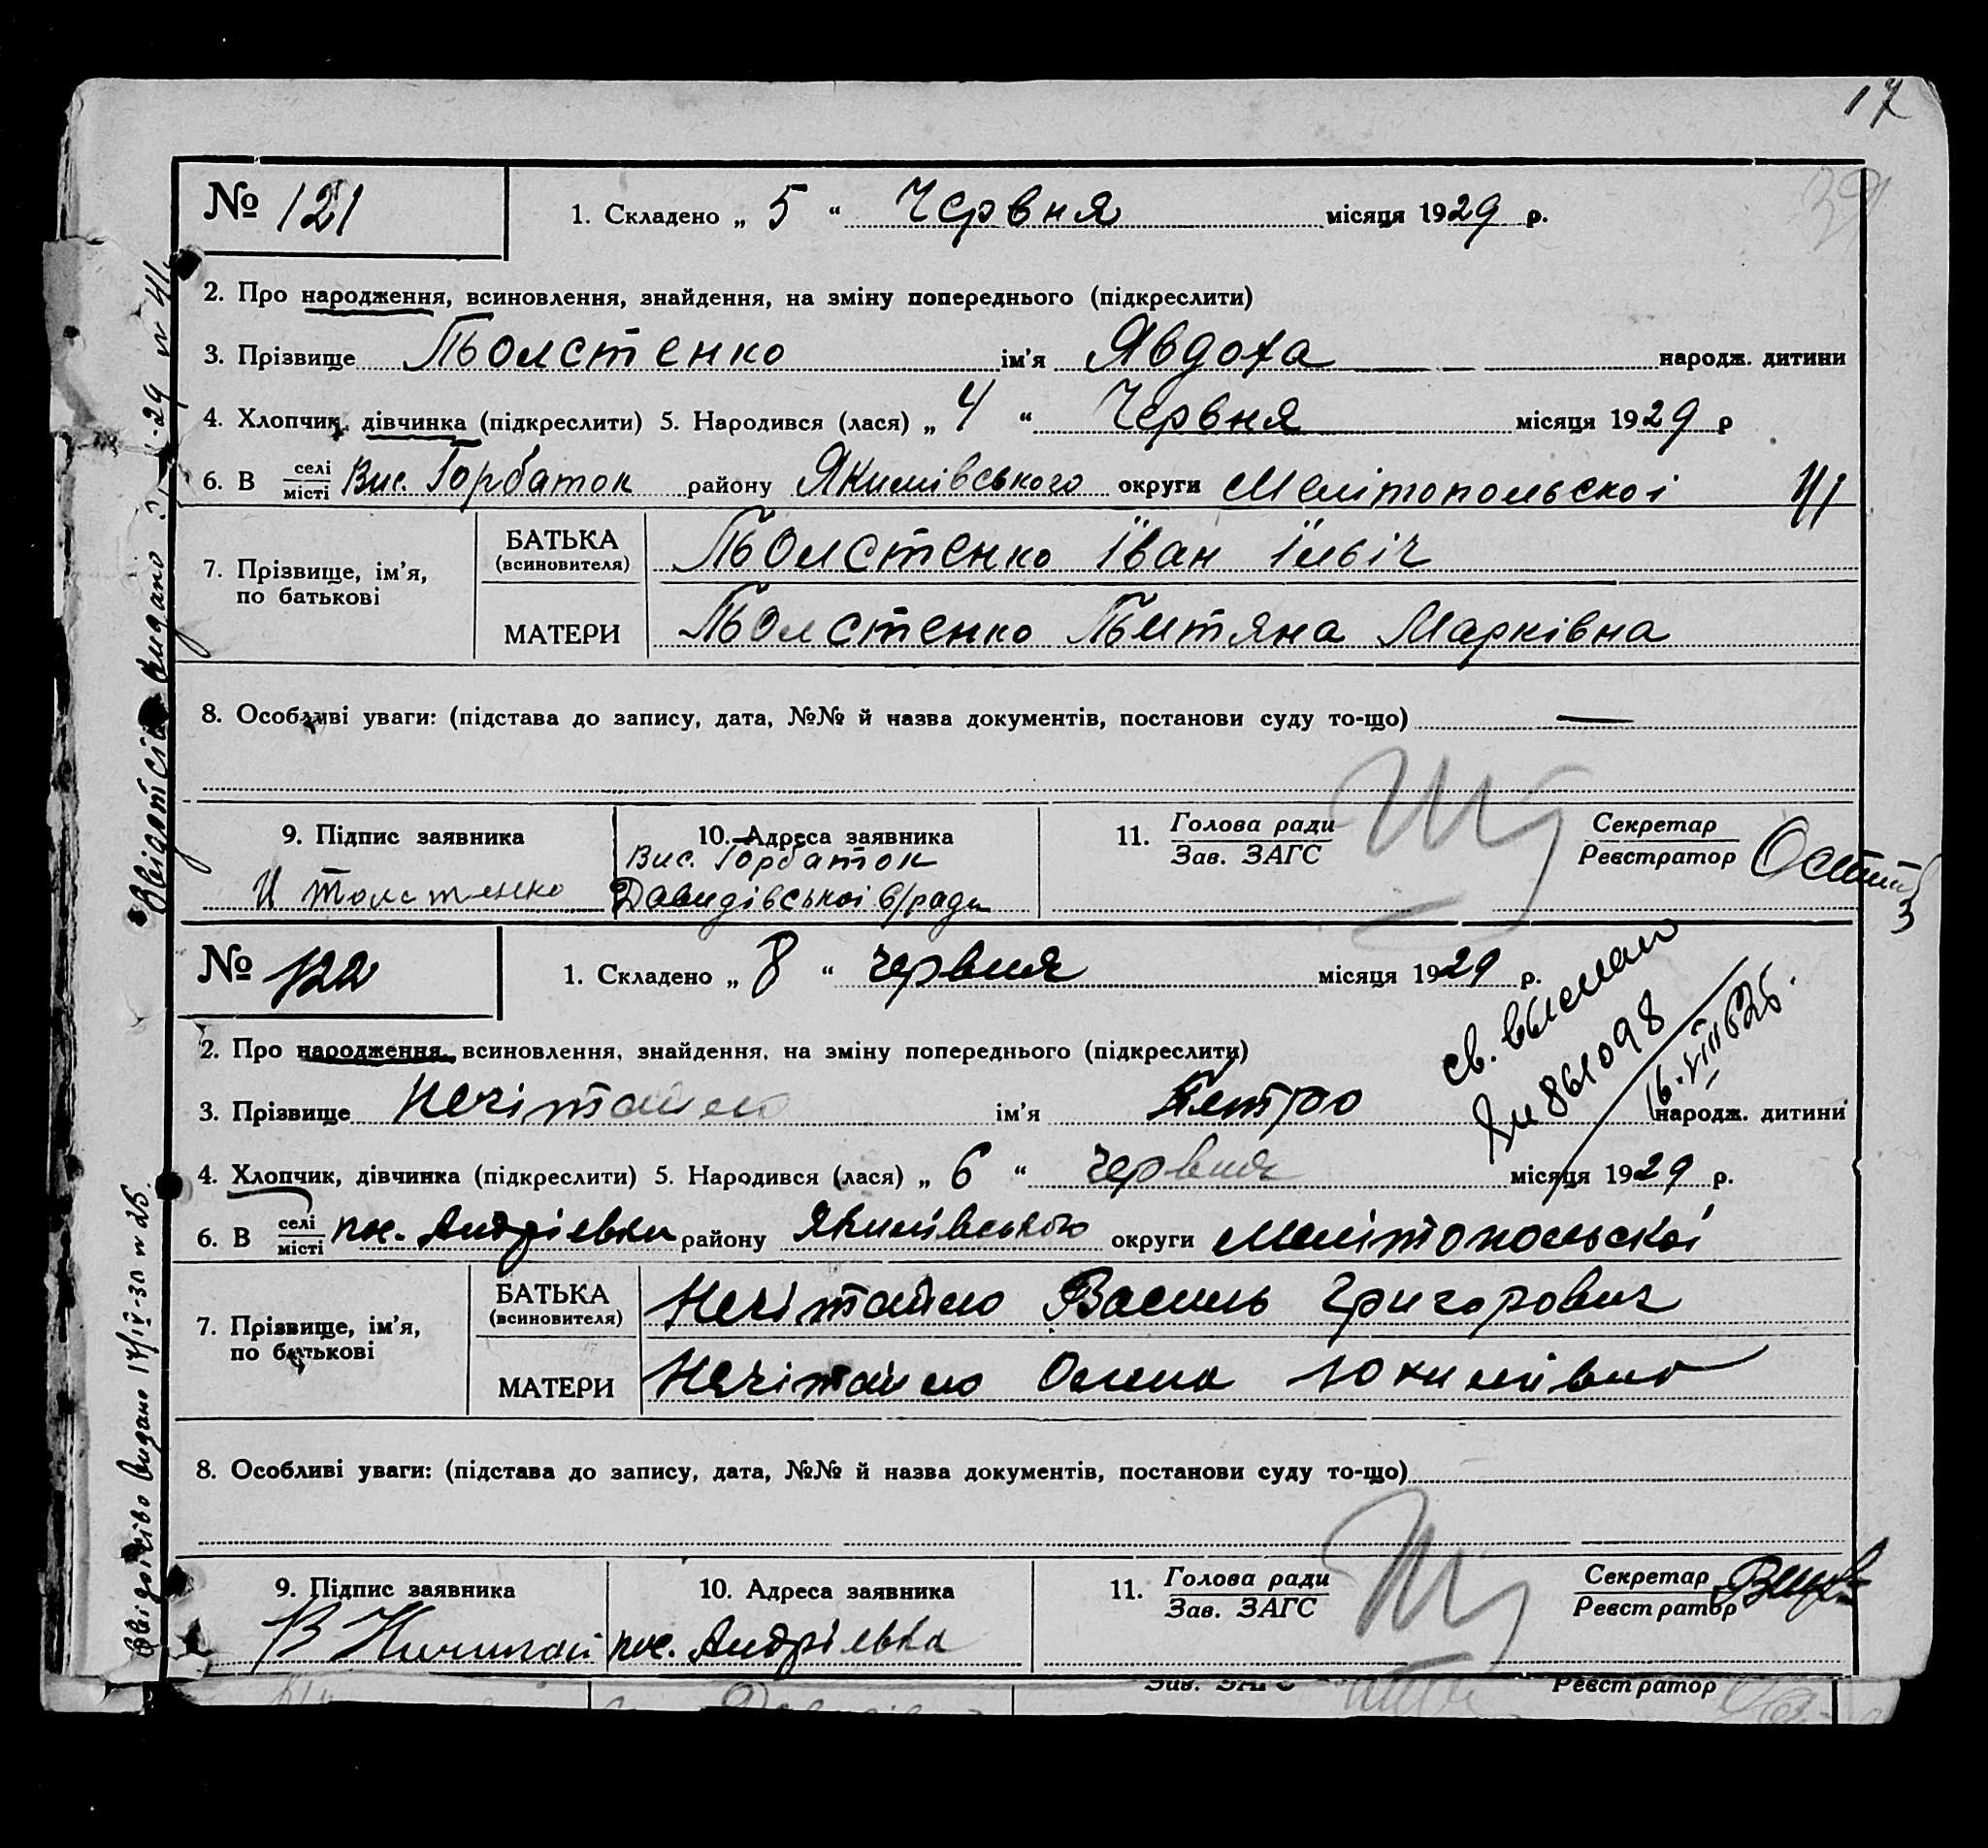 17
39
№ 121
1. Складено „ 5 “ Червня місяця 1929 р.
2. Про народження, всиновлення, знайдення, на зміну попереднього (підкреслити)
3. Прізвище Толстенко ім'я Явдоха народж. дитини
4. Хлопчик, дівчинка (підкреслити) 5. Народився (лася) „ 4 “ Червня місяця 1929 р
6. В селі місті Вис. Горбаток району Якимівського округи Мелітопольскоі
7. Прізвище, ім'я, по батькові
БАТЬКА (всиновителя) Толстенко Їван Їльвіч
МАТЕРИ Толстенко Титяна Марківна
8. Особливі уваги: (підстава до запису, дата, №№ й назва документів, постанови суду то-що) —
9. Підпис заявника
И толстенко
10. Адреса заявника
Вис. Горбаток
Давидівськоі с/ради
11. Голова ради
Зав. ЗАГС
Секретар
Реєстратор
№ 122
1. Складено „ 8 “ червня місяця 1929 р.
2. Про народження, всиновлення, знайдення, на зміну попереднього (підкреслити)
3. Прізвище Нечітайло ім'я Петро народж. дитини
св. выслан
861098
16.VIII 62г.
4. Хлопчик, дівчинка (підкреслити) 5. Народився (лася) „ 6 “ червня місяця 1929 р.
6. В селі місті пос. Андріевки району Якимівського округи Мелітопольскоі
7. Прізвище, ім'я, по батькові
БАТЬКА (всиновителя) Нечітайло Василь Григорович
МАТЕРИ Нечітайло Олена Юхимівна
8. Особливі уваги: (підстава до запису, дата, №№ й назва документів, постанови суду то-що)
9. Підпис заявника
В Ничитай
10. Адреса заявника
пос. Андріевка
11. Голова ради
Зав. ЗАГС
Секретар
Реєстратор
Зав. ЗАГС
Реєстратор
Свідоцтво видано 17/IV-30 N 25.